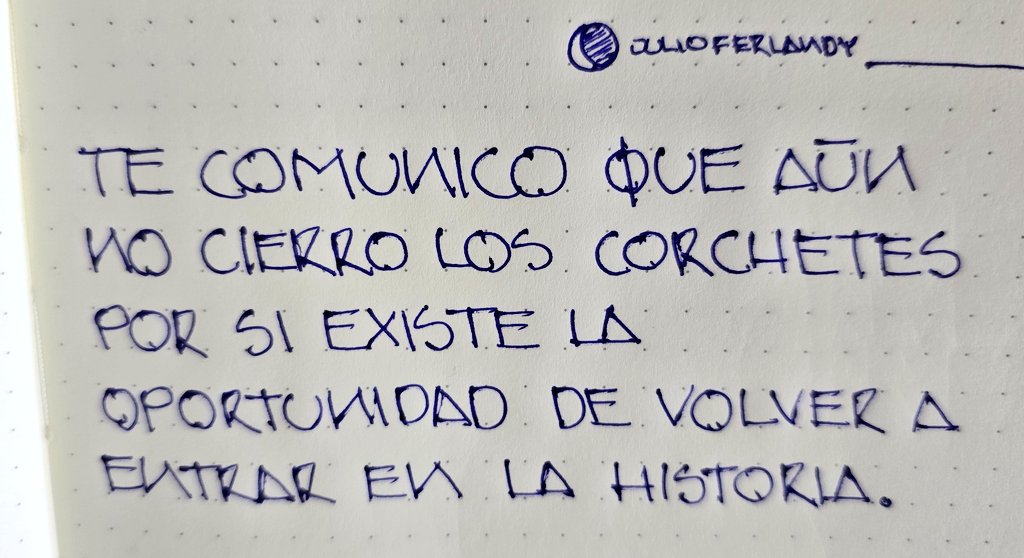 JULIOFERLANDY
TE COMUNICO QUE AÚN
NO CIERRO LOS CORCHETES
POR SI EXISTE LA
OPORTUNIDAD DE VOLVER A
ENTRAR EN LA HISTORIA.